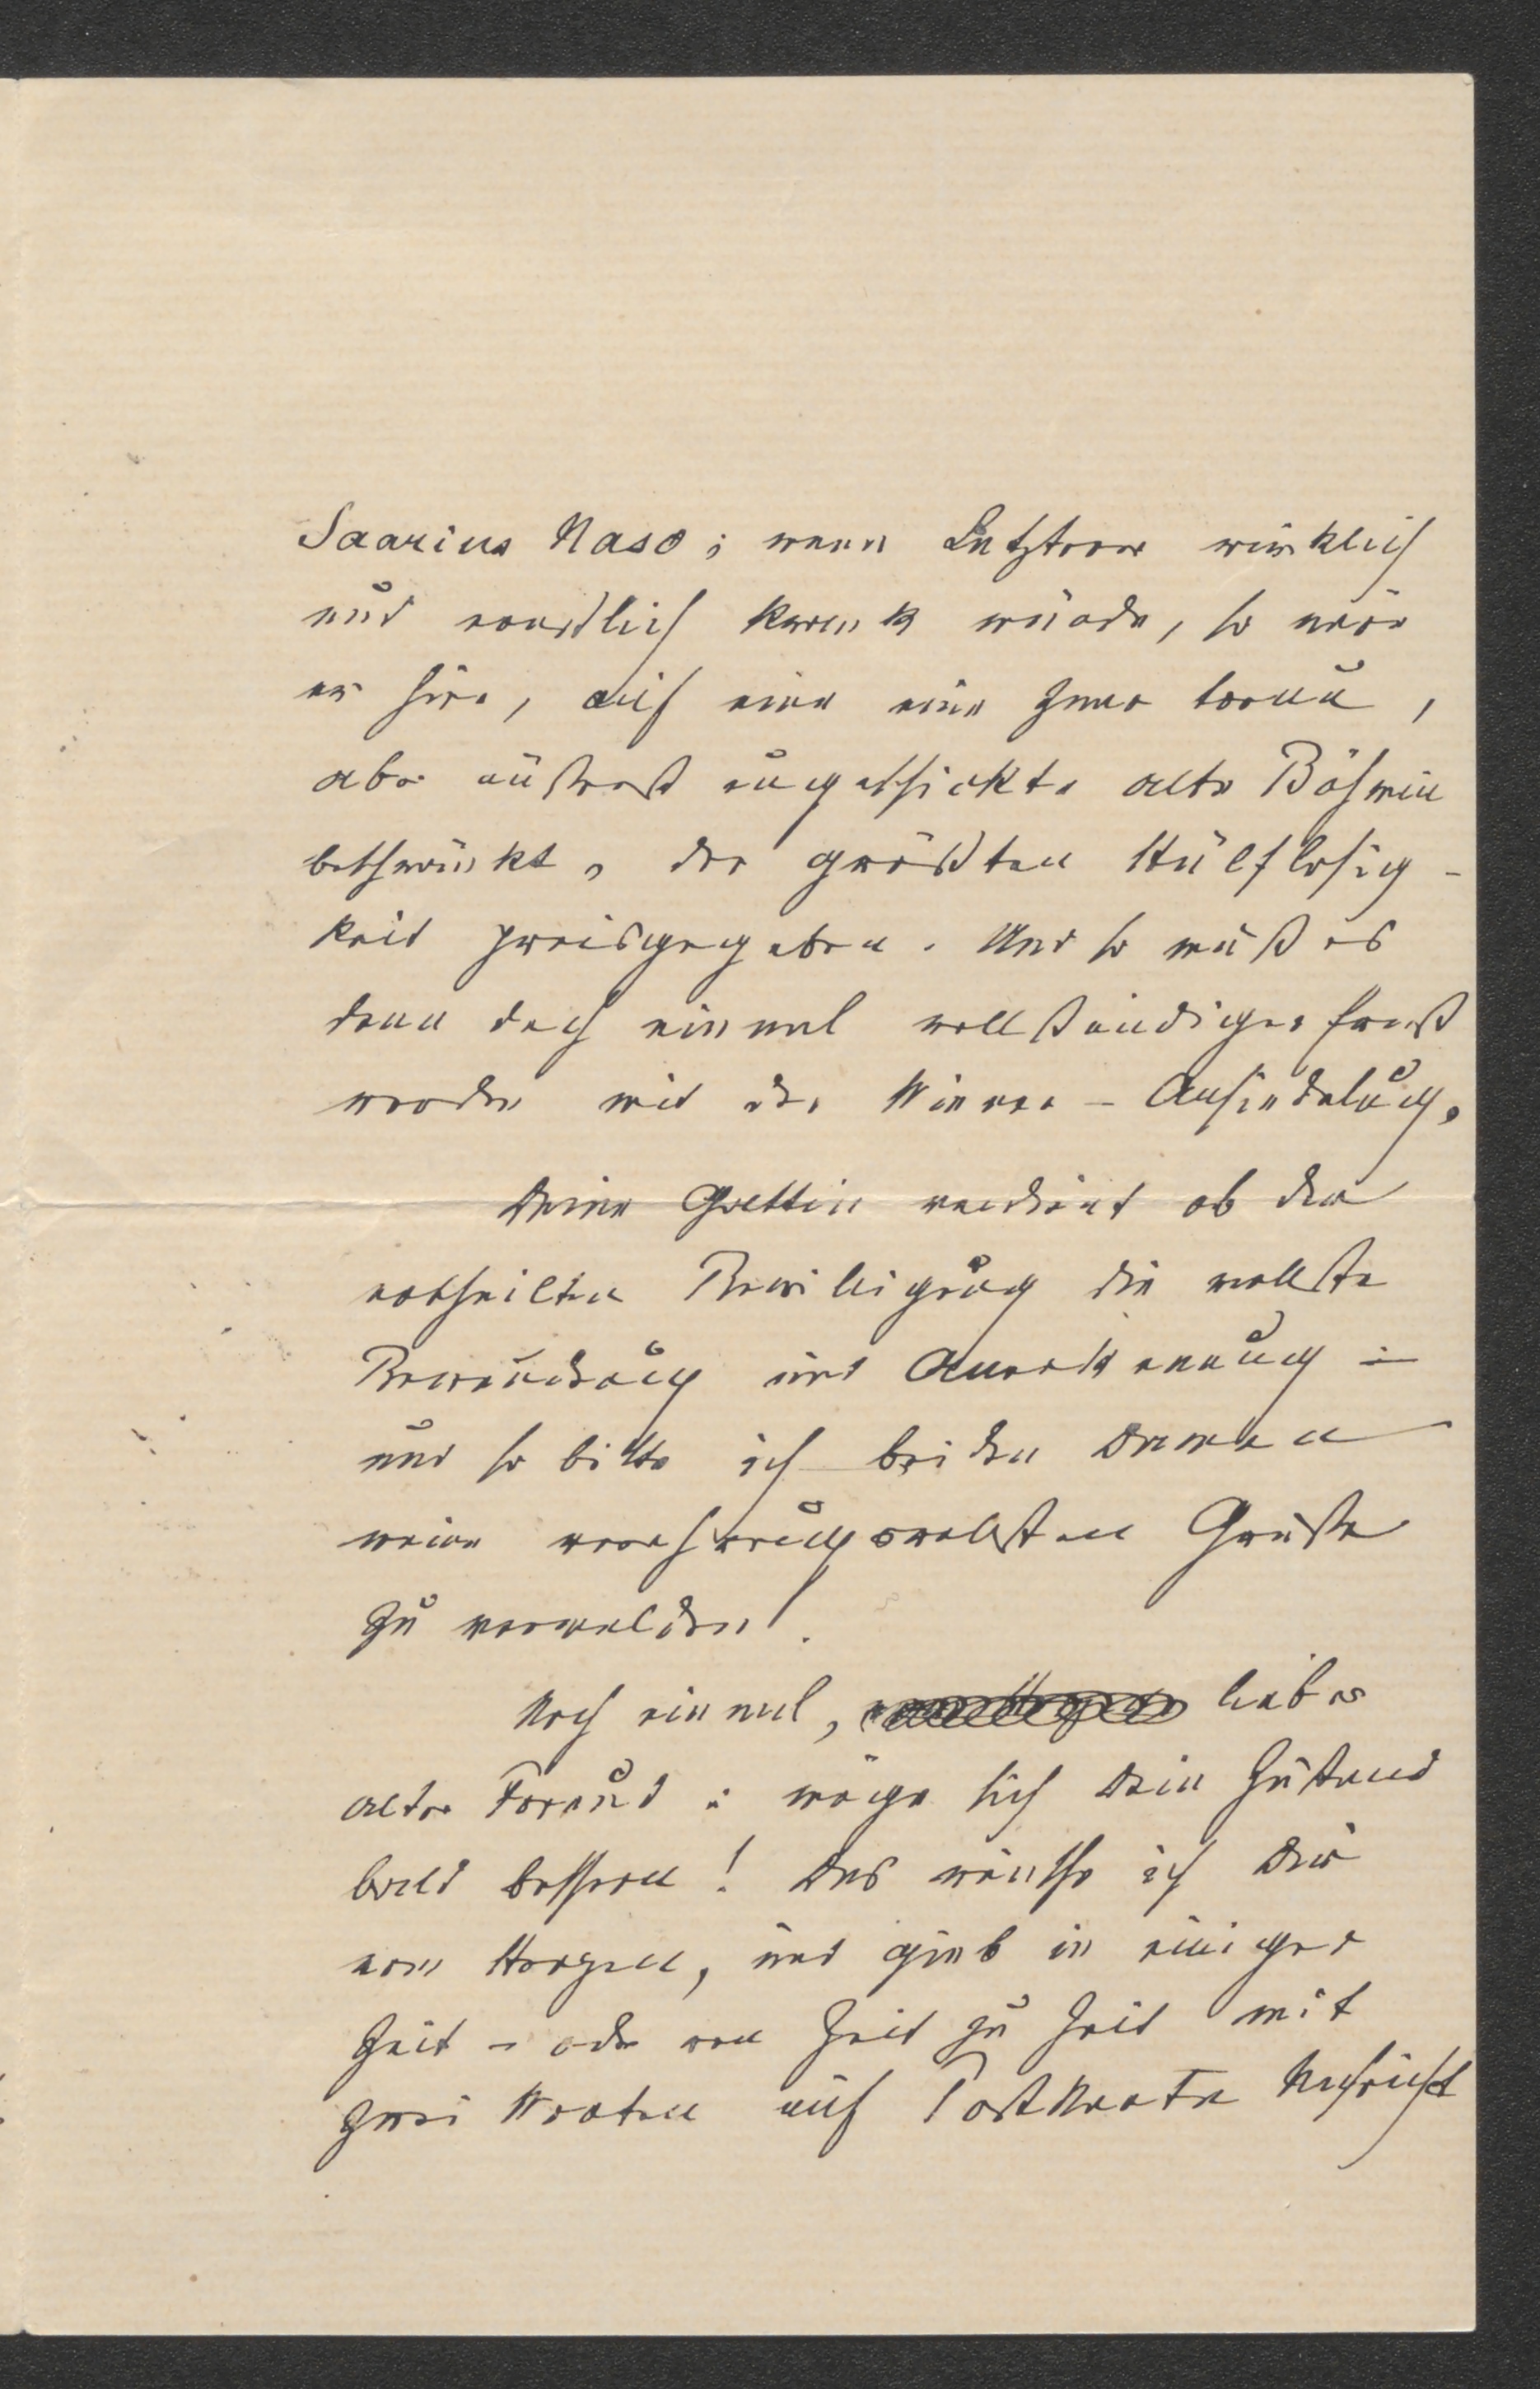 Saarius Naso; wenn Letzterer wirklich
und ernstlich krank würde, so wäre
er hier, auf eine eine zwar treue,
aber äußerst ungeschickte alte Böhmin
beschränkt, der größten Hülflosig-
keit preisgegeben. Und so muß es
denn doch einmal vollständiger Ernst
werden mit der Wiener-Ansiedelung.
Deine Gattin verdient ob der
ertheilten Bewilligung die vollste
Bewunderung und Anerkennung –
und so bitte ich beiden Damen
meine verehrungsvollsten Grüße
zu vermelden!
Noch einmal, lieber
alter Freund: möge sich Dein Zustand
bald bessern! Das wünsche ich Dir
vom Herzen, und gieb in einiger
Zeit – oder von Zeit zu Zeit mit
zwei Worten auf Postkarte Nachricht